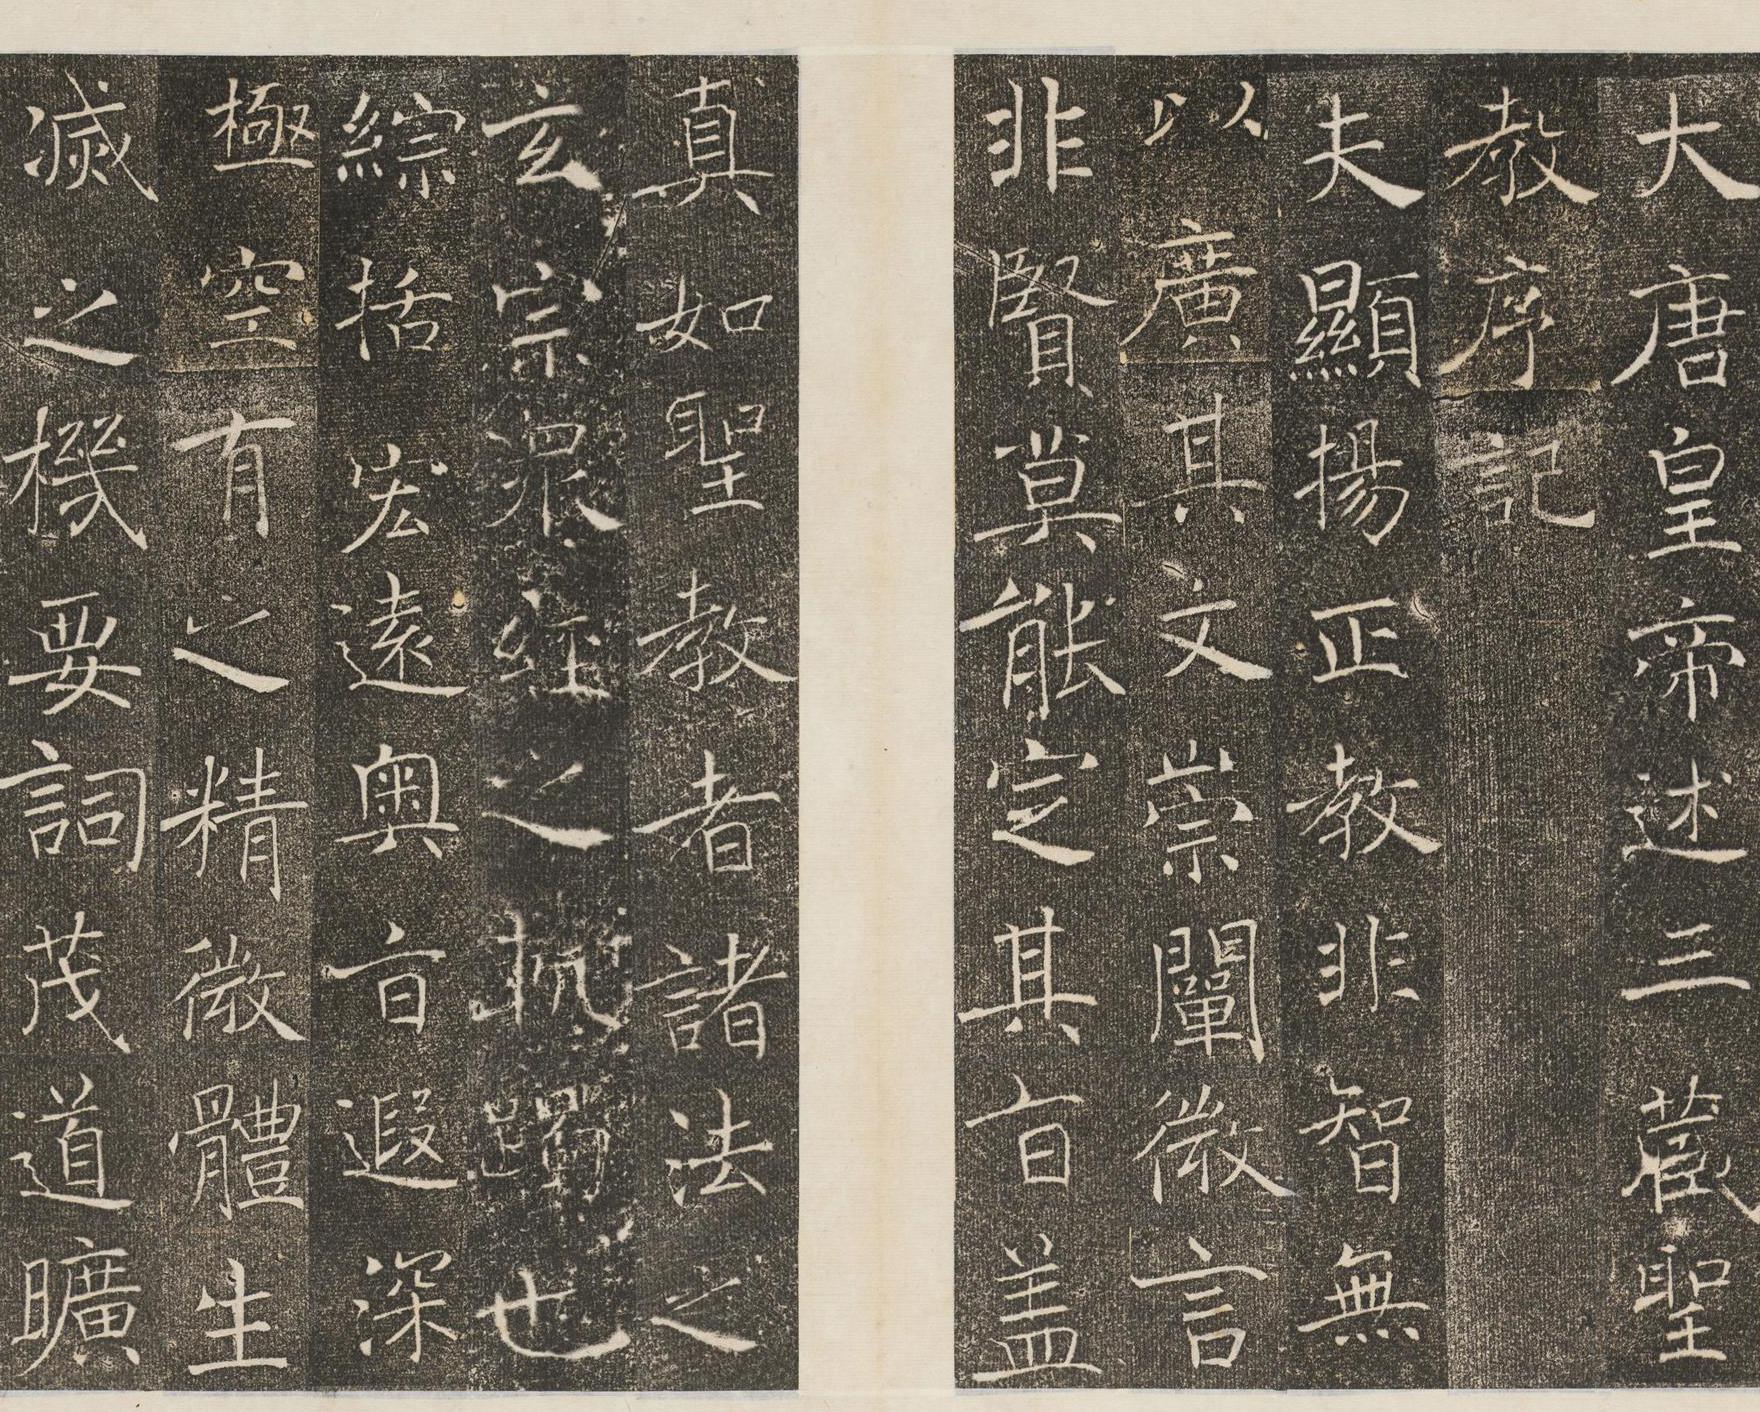 大唐皇帝述三藏聖
教序記
夫顯揚正教非智無
以廣其文崇闡微言
非賢莫能定其旨盖
真如聖教者諸法之
玄宗衆經之軌躅也
綜括宏遠奥旨遐深
極空有之精微體生
滅之機要詞茂道曠